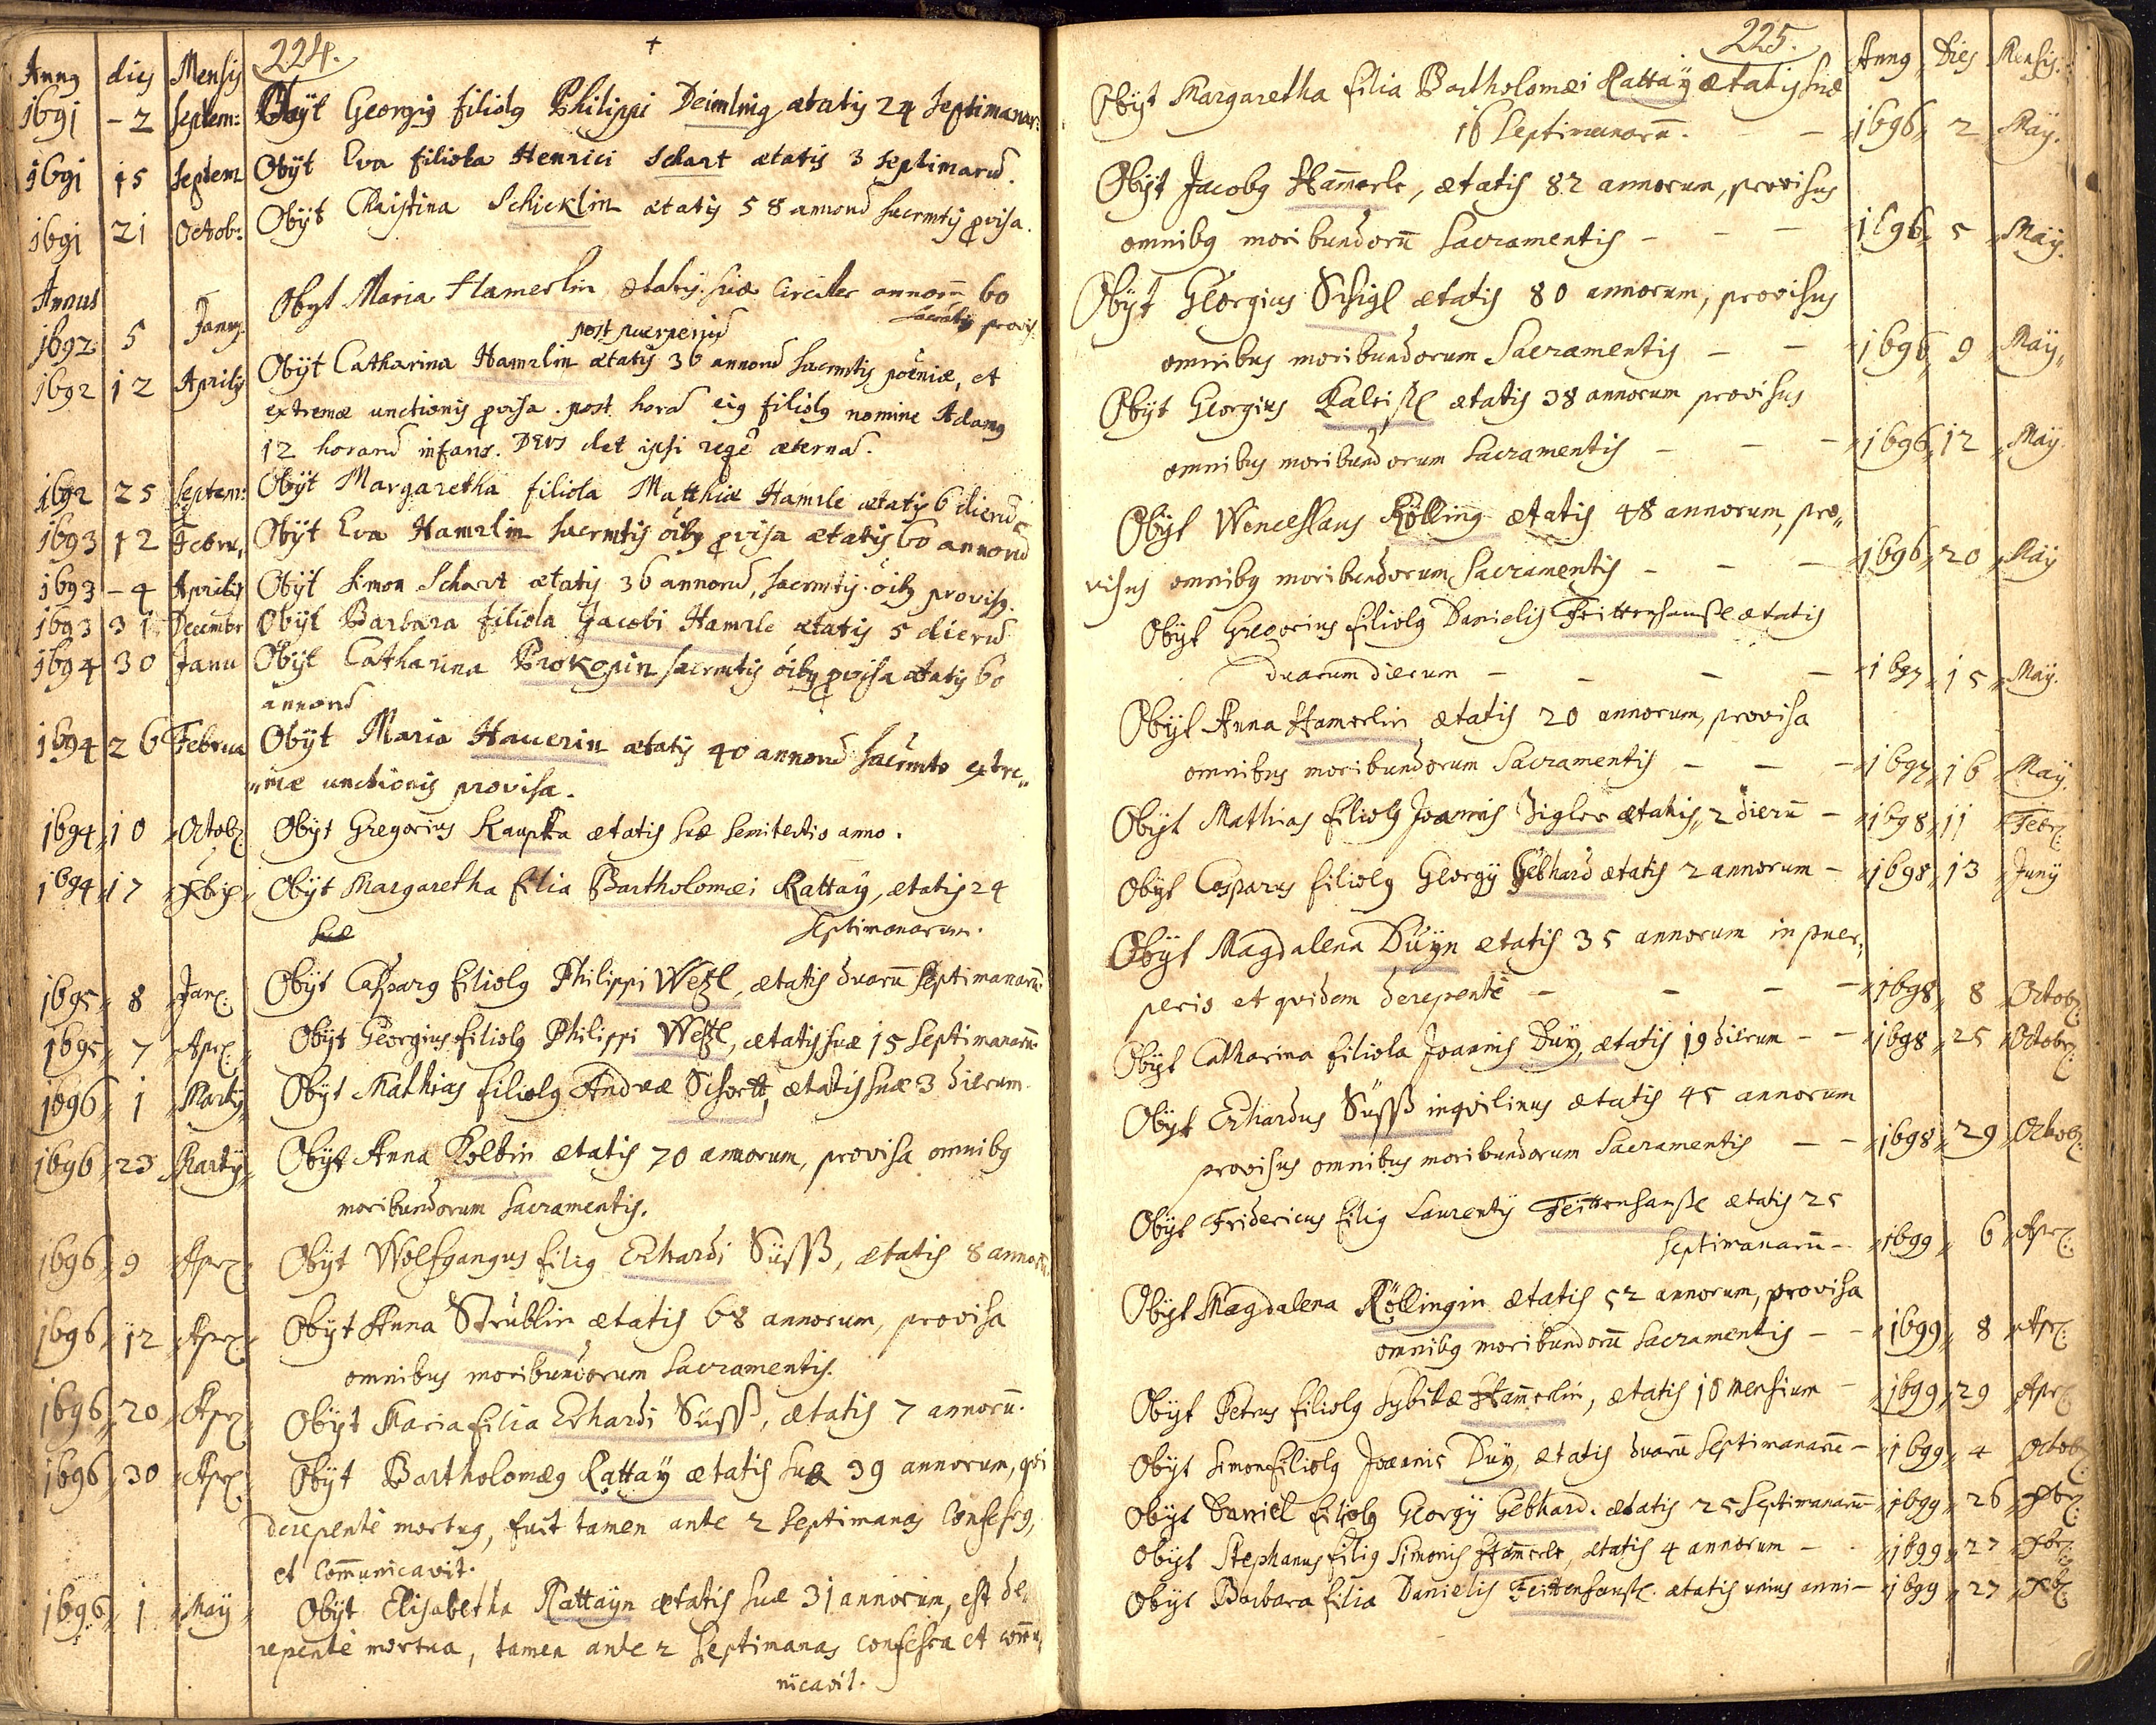 224. +
Anng dies Mensis
1691 - 2 Septem: Obijt Georgig filiolg Philippi Deimling ætatis 24 Septimanar:
1691 15 Septem Obijt Eva filiola Henrici Schart ætatis 3 Septimarũ.
1691 21 Octob: Obijt Christina Schicklin ætatis 58 annorũ sacrmtis pvisa.
Annus
1692 5 Janu: Obijt Maria Hamerlin, ætatis suæ circiter annorũ 60
sacrãtis provis:
post puerperiũ
1692 12 Aprilis Obijt Catharina Hamrlin ætatis 36 annorũ sacrmtis pœniæ, et
extremæ unctionis pvisa. post horã eig filiolg nomine Adamg
12 horarũ infans. DEUS det ipsi reqẽ æternã.
1692 25 Septem: Obijt Margaretha filiola Matthiæ Hamrle ætatis 6 dierũ
1693 12 Febru, Obijt Eva Hamrlin sacrmtis õibg pvisa ætatis 60 annorũ
1693 - 4 Aprilis Obijt Simon Schart ætatis 36 annorũ, sacrmtis õibg provisg.
1693 31 Decembr Obijt Barbara filiola Jacobi Hamrle ætatis 5 dierũ
1694 30 Janu Obijt Catharina Prokopin sacrmtis õibg pvisa ætatis 60
annorũ
1694 26 Februa Obijt Maria Hauerin ætatis 40 annorũ sacrmto extre„
„mæ unctionis provisa.
1694„ 10 „Octob: Obijt Gregorius Kaupka ætatis suæ semitertio anno.
1694„ 17 „Xbris„ Obijt Margaretha filia Bartholomæi Rattaÿ, ætatis 24
suæ septimanarum.
1695„ 8 „Jan: Obijt Casparg filiolg Philippi Weßl, ætatis duarũ septimanarũ.
1695„ 7 „Apr: Obijt Georgius filiolg Philippi Weßl, ætatis suæ 15 Septimanarũ.
1696„ 1 „Martij„ Obijt Mathias filiolg Andreæ Schortt, ætatis suæ 3 dierum.
1696„ 23 „Martij„ Obijt Anna Kolbin ætatis 70 annorum, provisa omnibg
moribundorum Sacramentis.
1696„ 9 „Apr: Obijt Wolfgangus filig Erhardi Süsß, ætatis 8 annorũ.
1696„ 12 „Apr: Obijt Anna Strublin ætatis 68 annorum, provisa
omnibus moribundorum Sacramentis.
1696„ 20 „Apr: Obijt Maria filia Erhardi Süsß, ætatis 7 annorũ.
1696„ 30 „Apr: Obijt Bartholomæg Rattaÿ ætatis suæ 39 annorum, qvi
derepentè mortug, fuit tamen ante 2 septimanas Confessg,
et Com̃unicavit.
1696„ 1 „Maÿ„ Obijt Elisabetha Rattaÿn ætatis suæ 31 annorum, est de„
repentè mortua, tamen ante 2 Septimanas confessa et com̃u„
nicavit.
225.
Anng Dies Mensis.
Obijt Margaretha filia Bartholomæi Rattaÿ ætatis suæ
16 Septimanarũ. - - „1696„ 2 „Maÿ.
Obijt Jacobg Ham̃erle, ætatis 82 annorum, provisus
omnibg moribundorũ Sacramentis - - - „1696„ 5 „Maÿ.
Obijt Georgius Schigl ætatis 80 annorum, provisus
omnibus moribundorum Sacramentis - - „1696„ 9 „Maÿ„
Obijt Georgius Kaltißl ætatis 38 annorum provisus
omnibus moribundorum Sacramentis - - - „1696„ 12 „Maÿ.
Obijt Wenceslaus Kölling ætatis 48 annorum, pro„
visus omnibg moribundorum Sacramentis - - - „1696„ 20 „Maÿ
Obijt Gregorius filiolg Danielis Feittenhanßl ætatis
duarum dierum - - - - „1697„ 15 „Maÿ.
Obijt Anna Hamerlin ætatis 20 annorum, provisa
omnibus moribundorum Sacramentis - - - „1697„ 16 „Maÿ.
Obijt Mathias filiolg Joannis Zigler ætatis„ 2 dierũ - „1698„ 11 „Febr:
Obijt Casparus filiolg Georgÿ Gebhard ætatis 2 annorum - „1698„ 13 „Junÿ
Obijt Magdalena Duÿn ætatis 35 annorum in puer„
perio et qvidem derepentè - - - - „1698„ 8 „Octob:
Obijt Catharina filiola Joannis Duÿ, ætatis 19 dierum - - „1698„ 25 „Octobr:
Obijt Erhardus Süsß inqvilinus ætatis 45 annorum
provisus omnibus moribundorum Sacramentis - - „1698„ 29 „Octob:
Obijt Fridericus filig Laurentÿ Feittenhanßl ætatis 25
septimanarũ - „1699„ 6 „Apr:
Obijt Magdalena Köllingin ætatis 52 annorum, provisa
omnibg moribundorũ Sacramentis - - „1699„ 8 „Apr:
Obijt Petrus filiolg Sybillæ Ham̃erlin, ætatis 10 mensium - „1699„ 29 „Apr:
Obijt Simon filiolg Joannis Duÿ, ætatis duarũ septimanarũ - „1699„ 4 „Octob:
Obijt Daniel filiolg Georgÿ Gebhard. ætatis 25 Septimanarũ „1699„ 26 „Xbr:
Obijt Stephanus filig Simonis Ham̃erle, ætatis 4 annorum - „1699„ 27 „Xbr:
Obijt Barbara filia Danielis Feittenhanßl. ætatis unius anni - „1699„ 27 „Xbr: